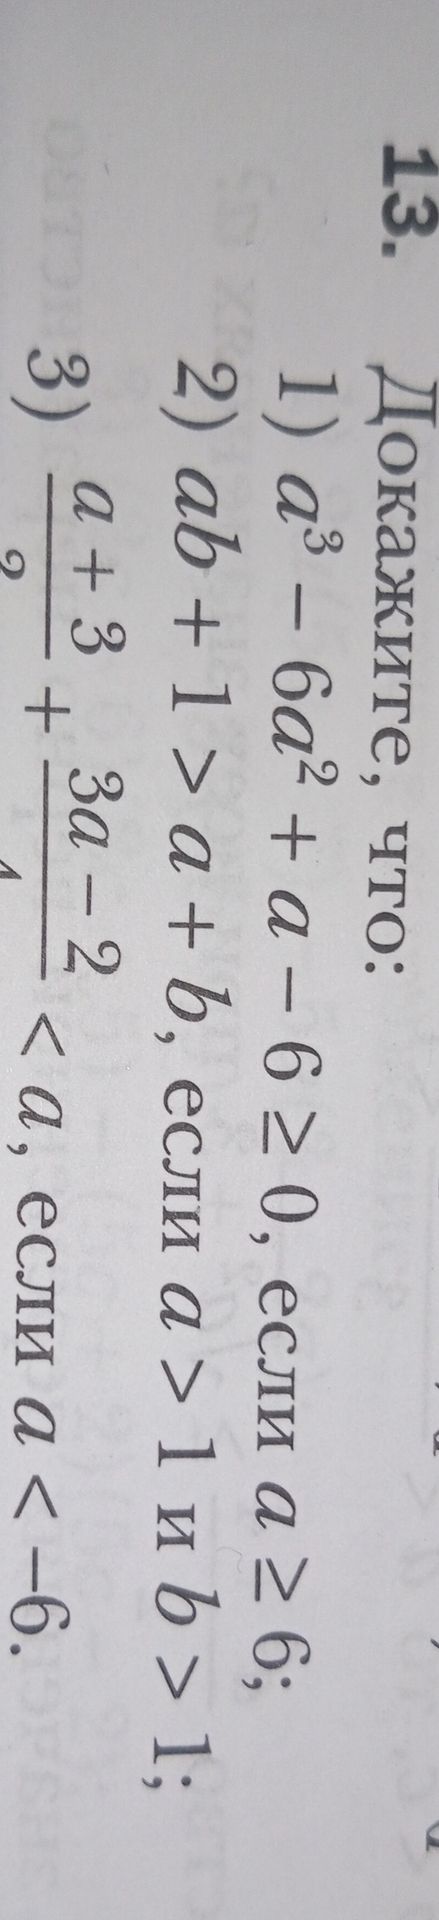 13. Докажите, что:
1) a³ − 6a² + a − 6 ≥ 0, если a ≥ 6;
2) ab + 1 > a + b, если a > 1 и b > 1;
3) (a + 3)/2 + (3a − 2)/4 < a, если a < −6.